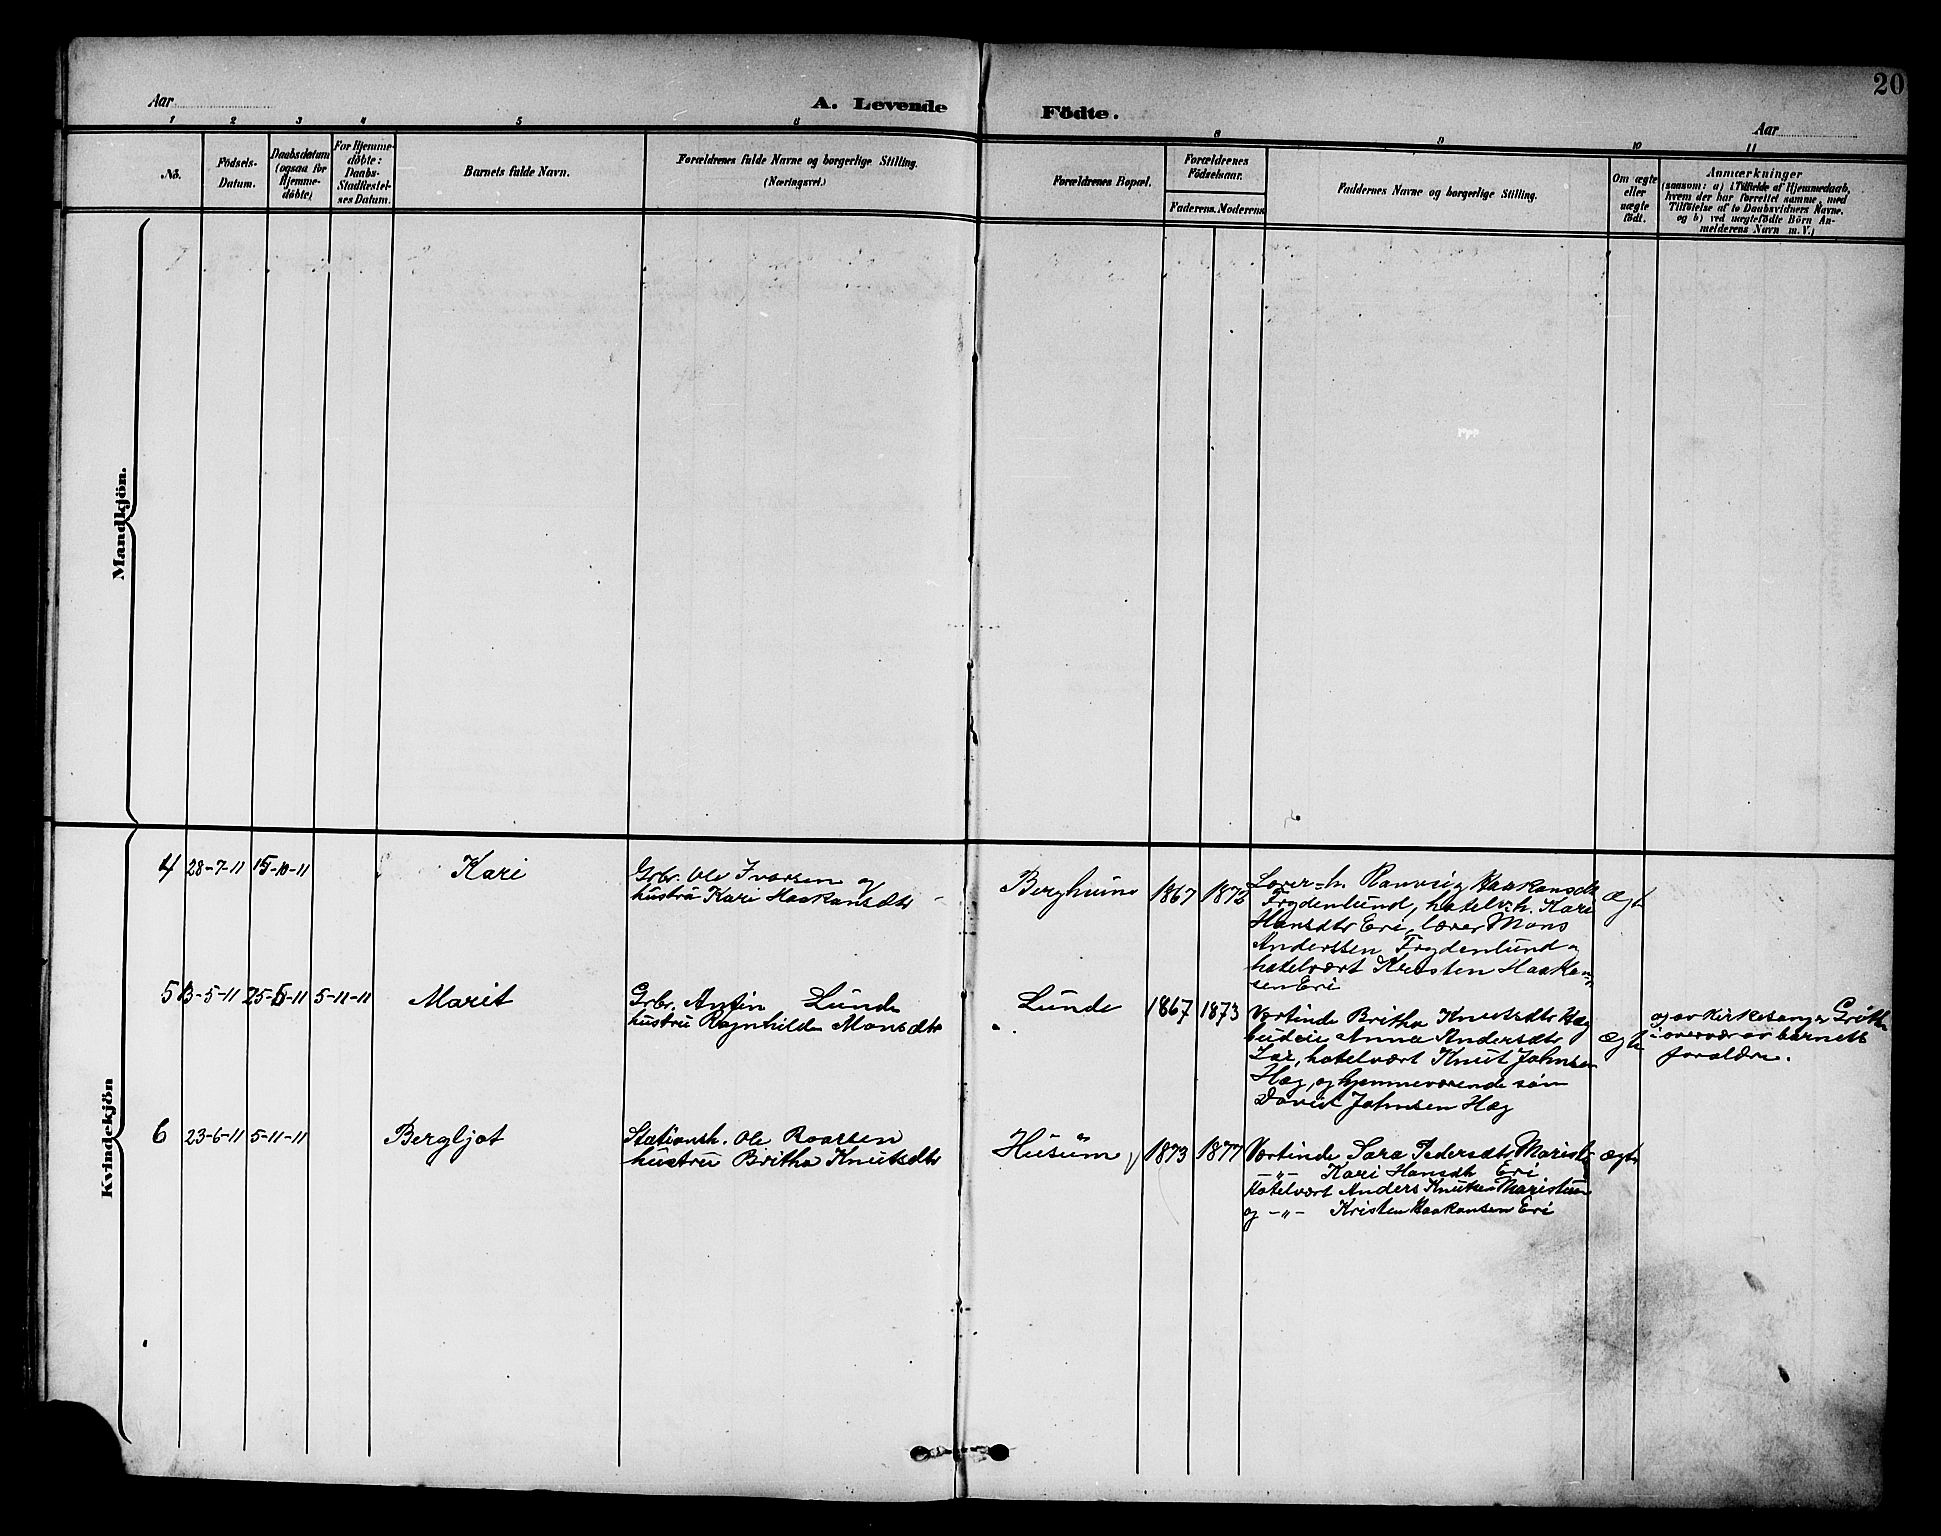 20
Aar
A. Levende Födte.
Aar
1 2 3 4 5 6 8 9 10 11
No.
Födsels-
Datum.
Daabsdatum
(ogsaa for
Hjemme-
döbte)
For Hjemme-
döbte:
Daabs-
Stadfæstel-
ses Datum.
Barnets fulde Navn.
Forældrenes fulde Navne og borgerlige Stilling.
(Næringsvei.)
Forældrenes Bopæl.
Forældrenes
Födselsaar.
Faderens. Moderens.
Faddernes Navne og borgerlige Stilling.
Om ægte
eller
uægte
födt.
Anmærkninger
(saasom: a) i Tilfælde af Hjemmedaab,
hvem der har forrettet samme, med
Tilföielse af to Daabsvidners Navne,
og b) ved uægtefödte Börn An-
melderens Navn m. V.)
Mandkjön.
Kvindekjön
4 28-7-11 15-10-11
Kari
Grbr. Ole Ivarsen og
hustru Kari Haakansdtr
Berghuine
1867 1872
Lærer-h. Ranveig Haakansdtr
Frydenlund, hotelv.h. Kari
Hansdtr Eri, lærer Mons
Anderssen Frydenlund og
hotelvært Kristen Haakan-
sen Eri
Ægte
5 13-5-11 25-5-11 5-11-11
Marit
Grbr. Anfin Lunde
hustru Ragnhilde Monsdtr
Lunde
1867 1873
Vertinde Britha Knutsdtr Hæg
budeie Anna Andersdtr
Lo, hotelvært Knut Johnsen
Hæg, og hjemmeværende søn
David Johnsen Hæg
Ægte
og av Kirkesanger Grøth
i overvær av barnets
forældre.
6 23-6-11 5-11-11
Bergljot
Stationsh. Ole Roarsen
hustru Britha Knutsdtr
Husum
1873 1877
Vertinde Sara Pedersdtr Maristu
-"- Kari Hansdtr Eri
Hotelvært Anders Knutsen Maristuen
og -"- Kristen Haakansen Eri
ægte